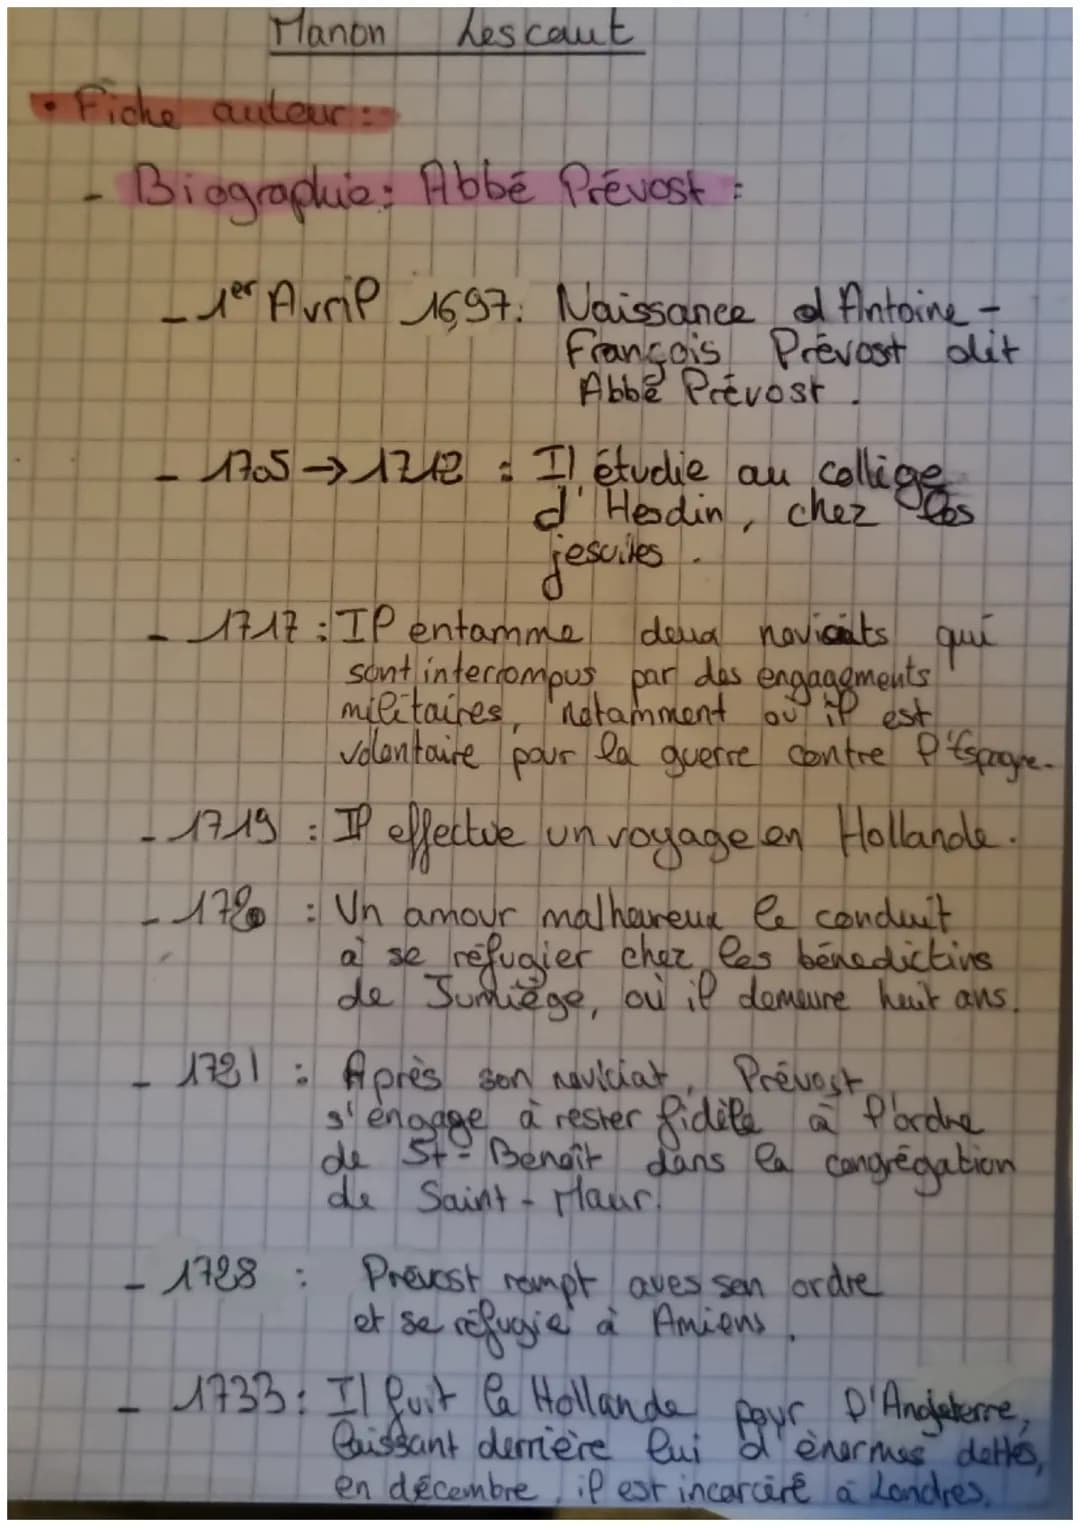 Manon Lescaut
• Fiche auteur :
- Biographie : Abbé Prévost :
- 1er Avril 1697 : Naissance d'Antoine-
François Prévost dit
Abbé Prévost.
- 1705 → 1712 : Il étudie au collège
d'Hesdin, chez les
jesuites.
- 1717 : Il entamme deux noviciats qui
sont interrompus par des engagements
militaires, notamment où il est
volontaire pour la guerre contre l'Espagne.
- 1719 : Il effectue un voyage en Hollande.
- 1720 : Un amour malheureux le conduit
à se réfugier chez les bénedictins
de Jumiège, où il demeure huit ans.
- 1721 : Après son noviciat, Prévost
s'engage à rester fidèle à l'ordre
de St-Benoît dans la congrégation
de Saint-Maur.
- 1728 : Prévost rompt aves son ordre
et se réfugie à Amiens.
- 1733 : Il fuit la Hollande pour l'Angleterre,
laissant derrière lui d'énormes dettes,
en décembre, il est incarcéré à Londres.